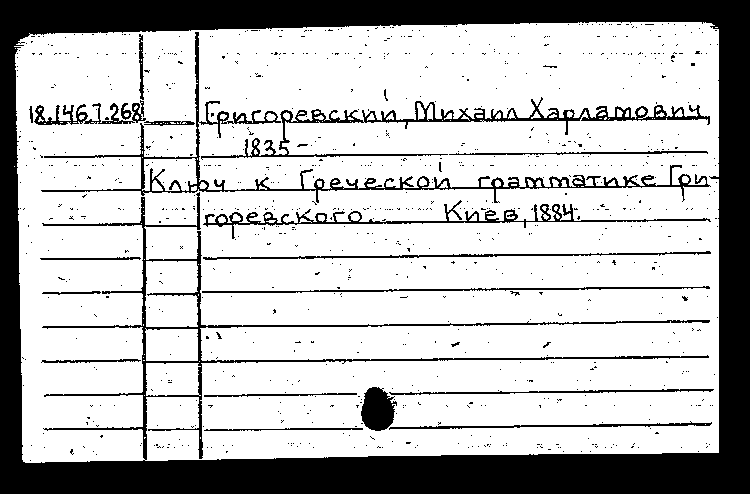 18.146.7.268 Григоревский, Михаил Харламович,
1835-
Ключ к Греческой грамматике Гри-
горевского. Киев, 1884.